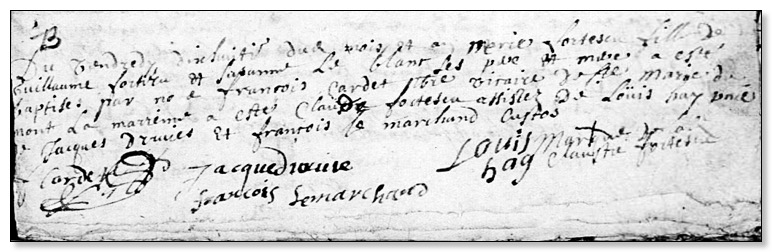 B
Du vendredy dixhuitie du mois et a Marie fortescu fille de
Guillaume fortescu et Susanne Le blanc ses pere et mere a esté
baptisée par no e françois Cardet pbre vicaire de Ste Marie du
mont La marrenne a esté Claude fortescu assistez de Loüis hay
de Jacques Druies et françois le marchand Custos
Cardet Jacque Louis hag Marque de
françois Lemarchand